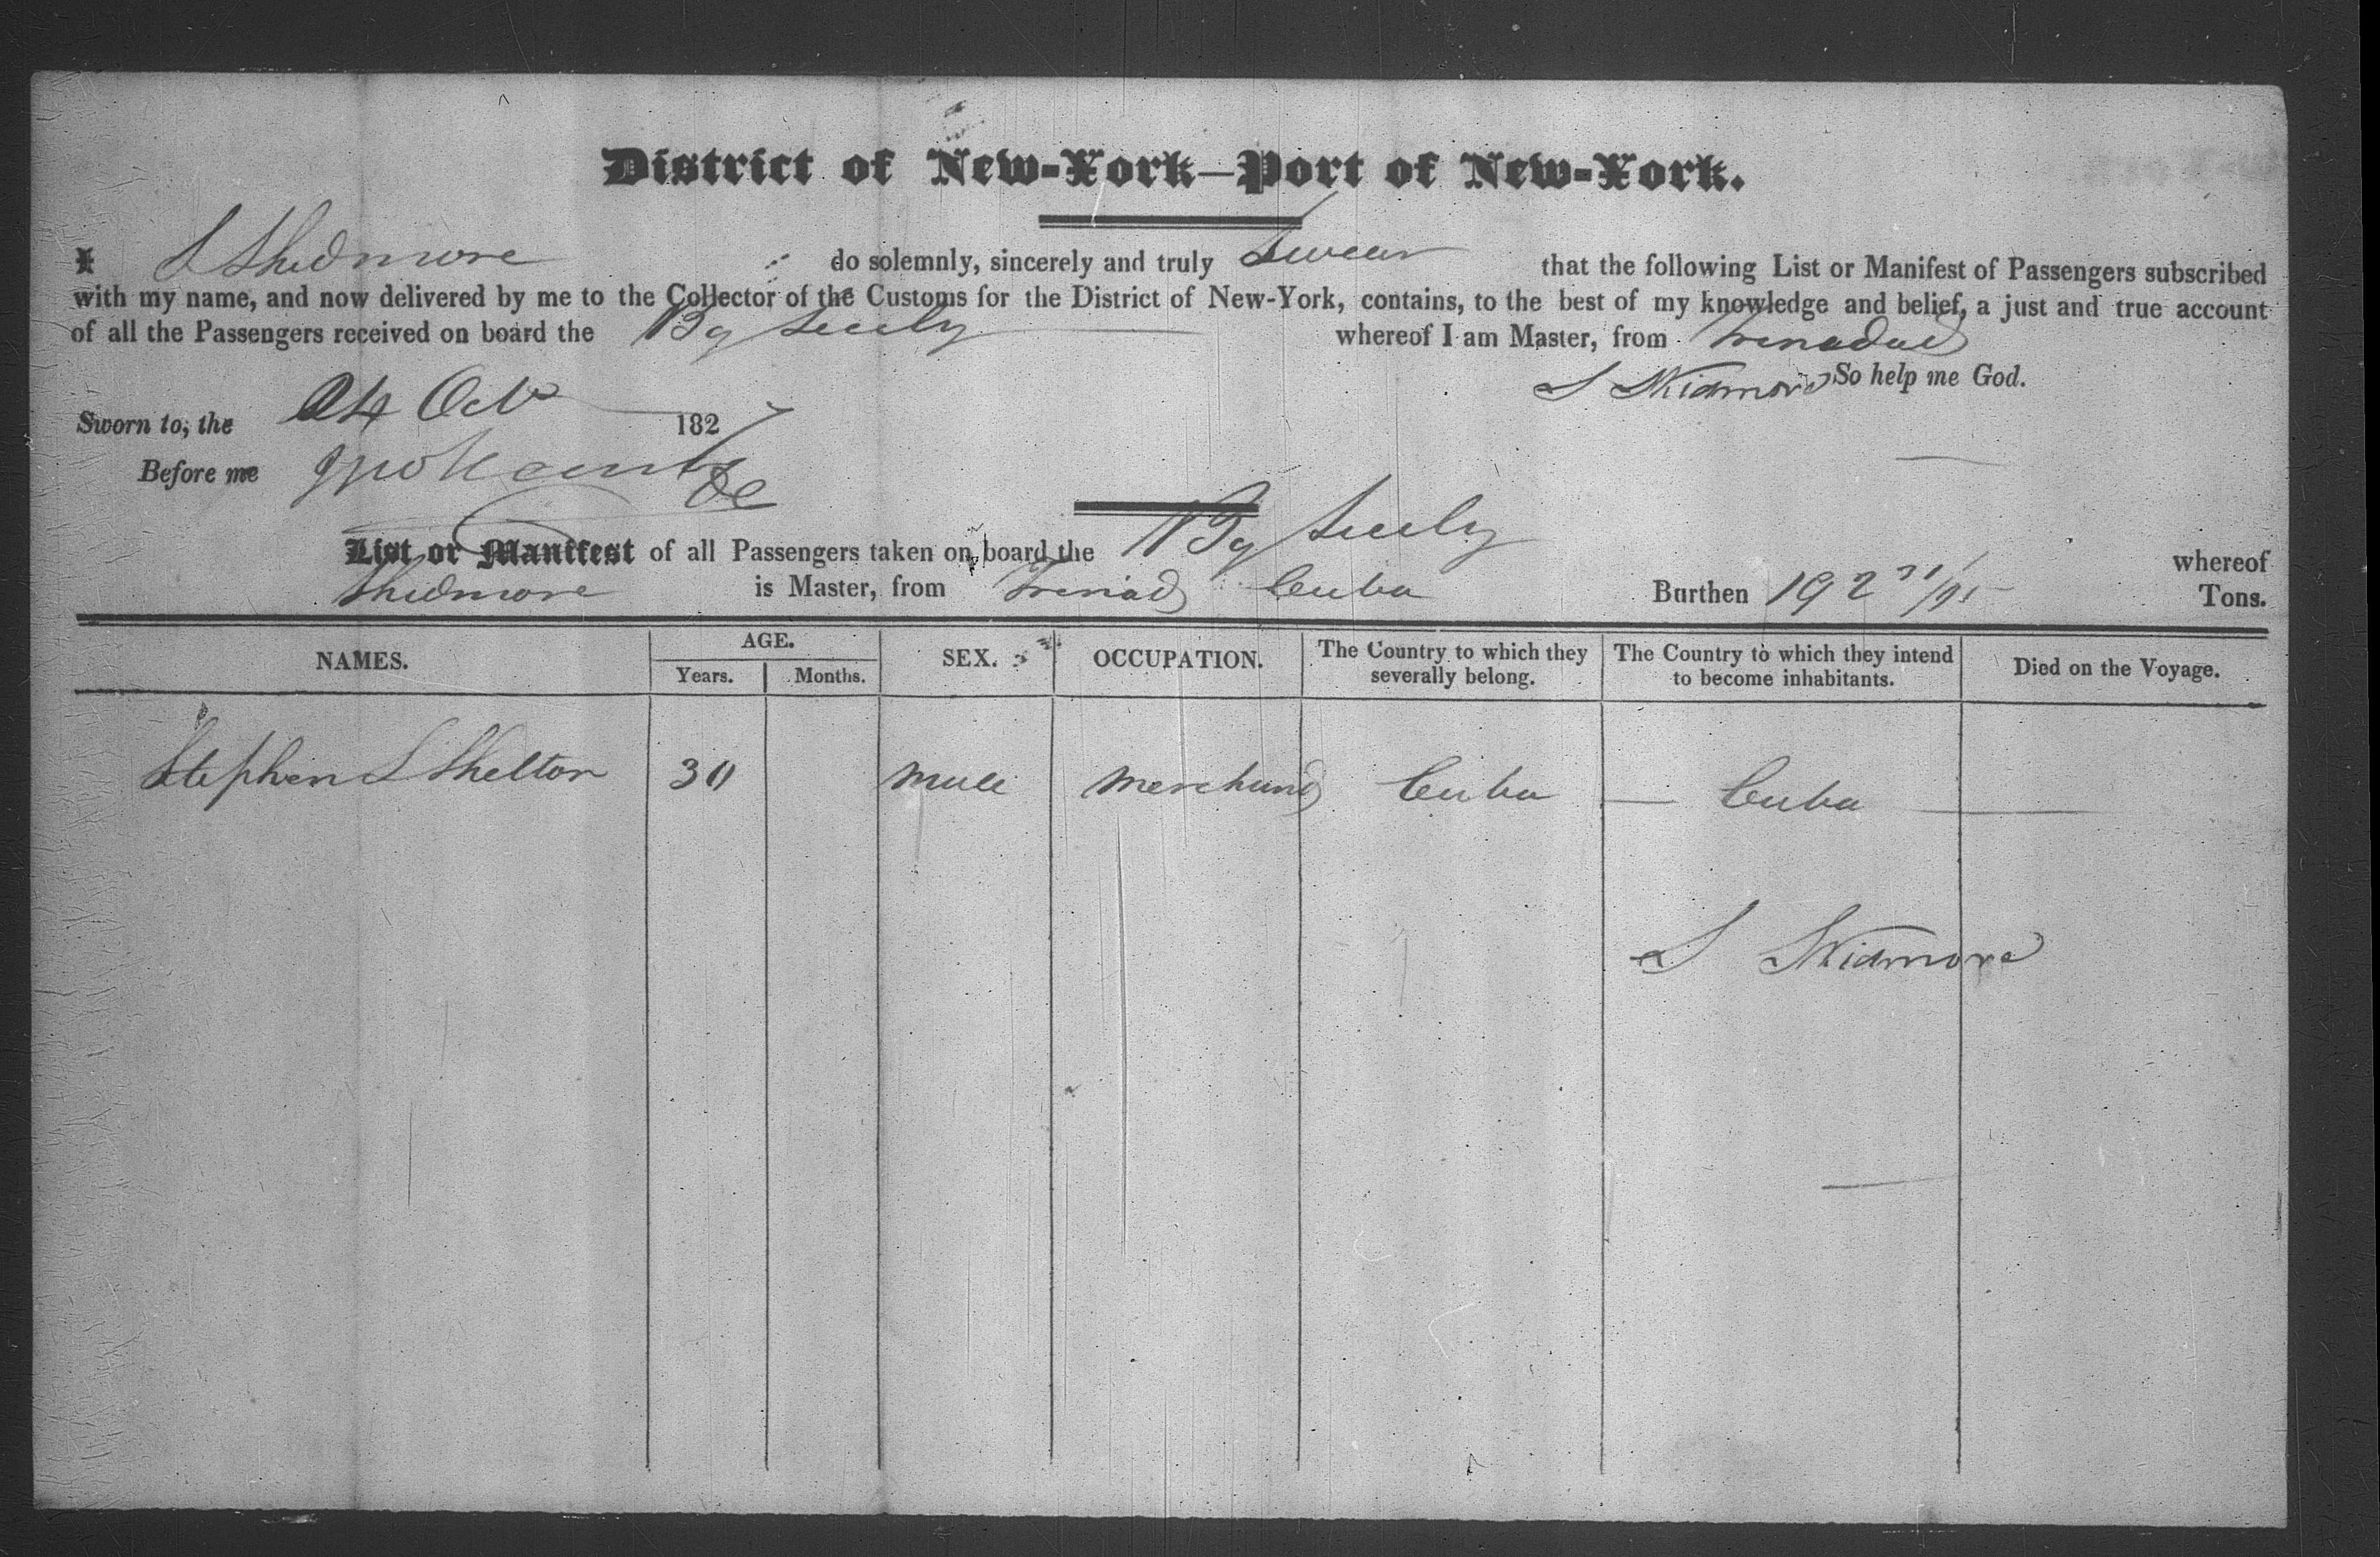 District of New-York—Port of New-York.
I S Skidmore do solemnly, sincerely and truly Swear that the following List or Manifest of Passengers subscribed
with my name, and now delivered by me to the Collector of the Customs for the District of New-York, contains, to the best of my knowledge and belief, a just and true account
of all the Passengers received on board the Bg whereof I am Master, from Trinadad
S Skidmore So help me God.
Sworn to, the 24 Oct 1827
Before me
List or Manifest of all Passengers taken on board the Bg whereof
Skidmore is Master, from Trinad Cuba Burthen 192 71/95 Tons.
NAMES. AGE. SEX. OCCUPATION. The Country to which they severally belong. The Country to which they intend to become inhabitants. Died on the Voyage.
Years. Months.
Stephen S Shelton 30 male merchand Cuba — Cuba —
S Skidmore